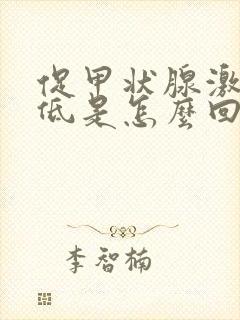 促甲状腺激
低是怎麼回
李智楠